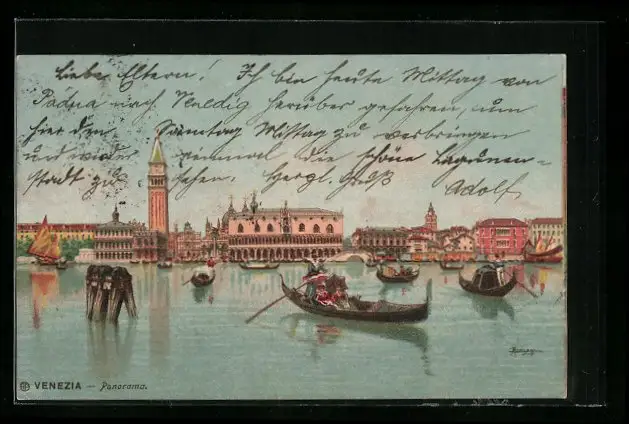 Liebe Eltern! Ich bin heute Mittag von
Padua nach Venedig herüber gefahren, um
hier den Samstag Mittag zu verbringen
und wieder einmal die schöne Lagunen-
stadt zu sehen. Herzl. Gruß
Adolf
VENEZIA — Panorama.